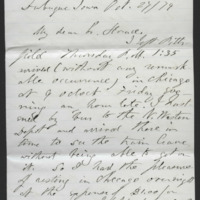 Dubuque Iowa Oct. 27/79
My dear L. House,
I left Pitts
field Thursday P.M. 1:35
arrived (without any remark
able occurrence) in Chicago
at 9 oclock Friday eve
ning an hour late. I hast
ened by bus to the N. Western
Depot and arrived there in
time to see the train leave
without being able to
it. So I had the pleasure
of resting in Chicago overnight
at the expense of